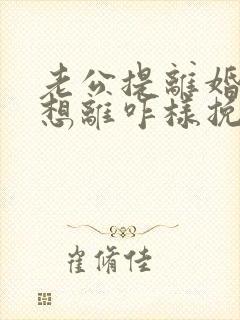 老公提離婚
想離咋樣挽
崔脩佳